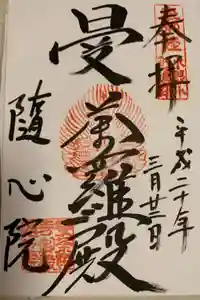 奉拝
平成二十年
三月廿三日
曼荼羅殿
隨心院